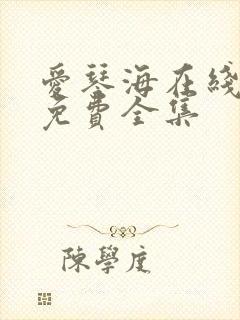 愛琴海在綫
免費全集
陳學庢